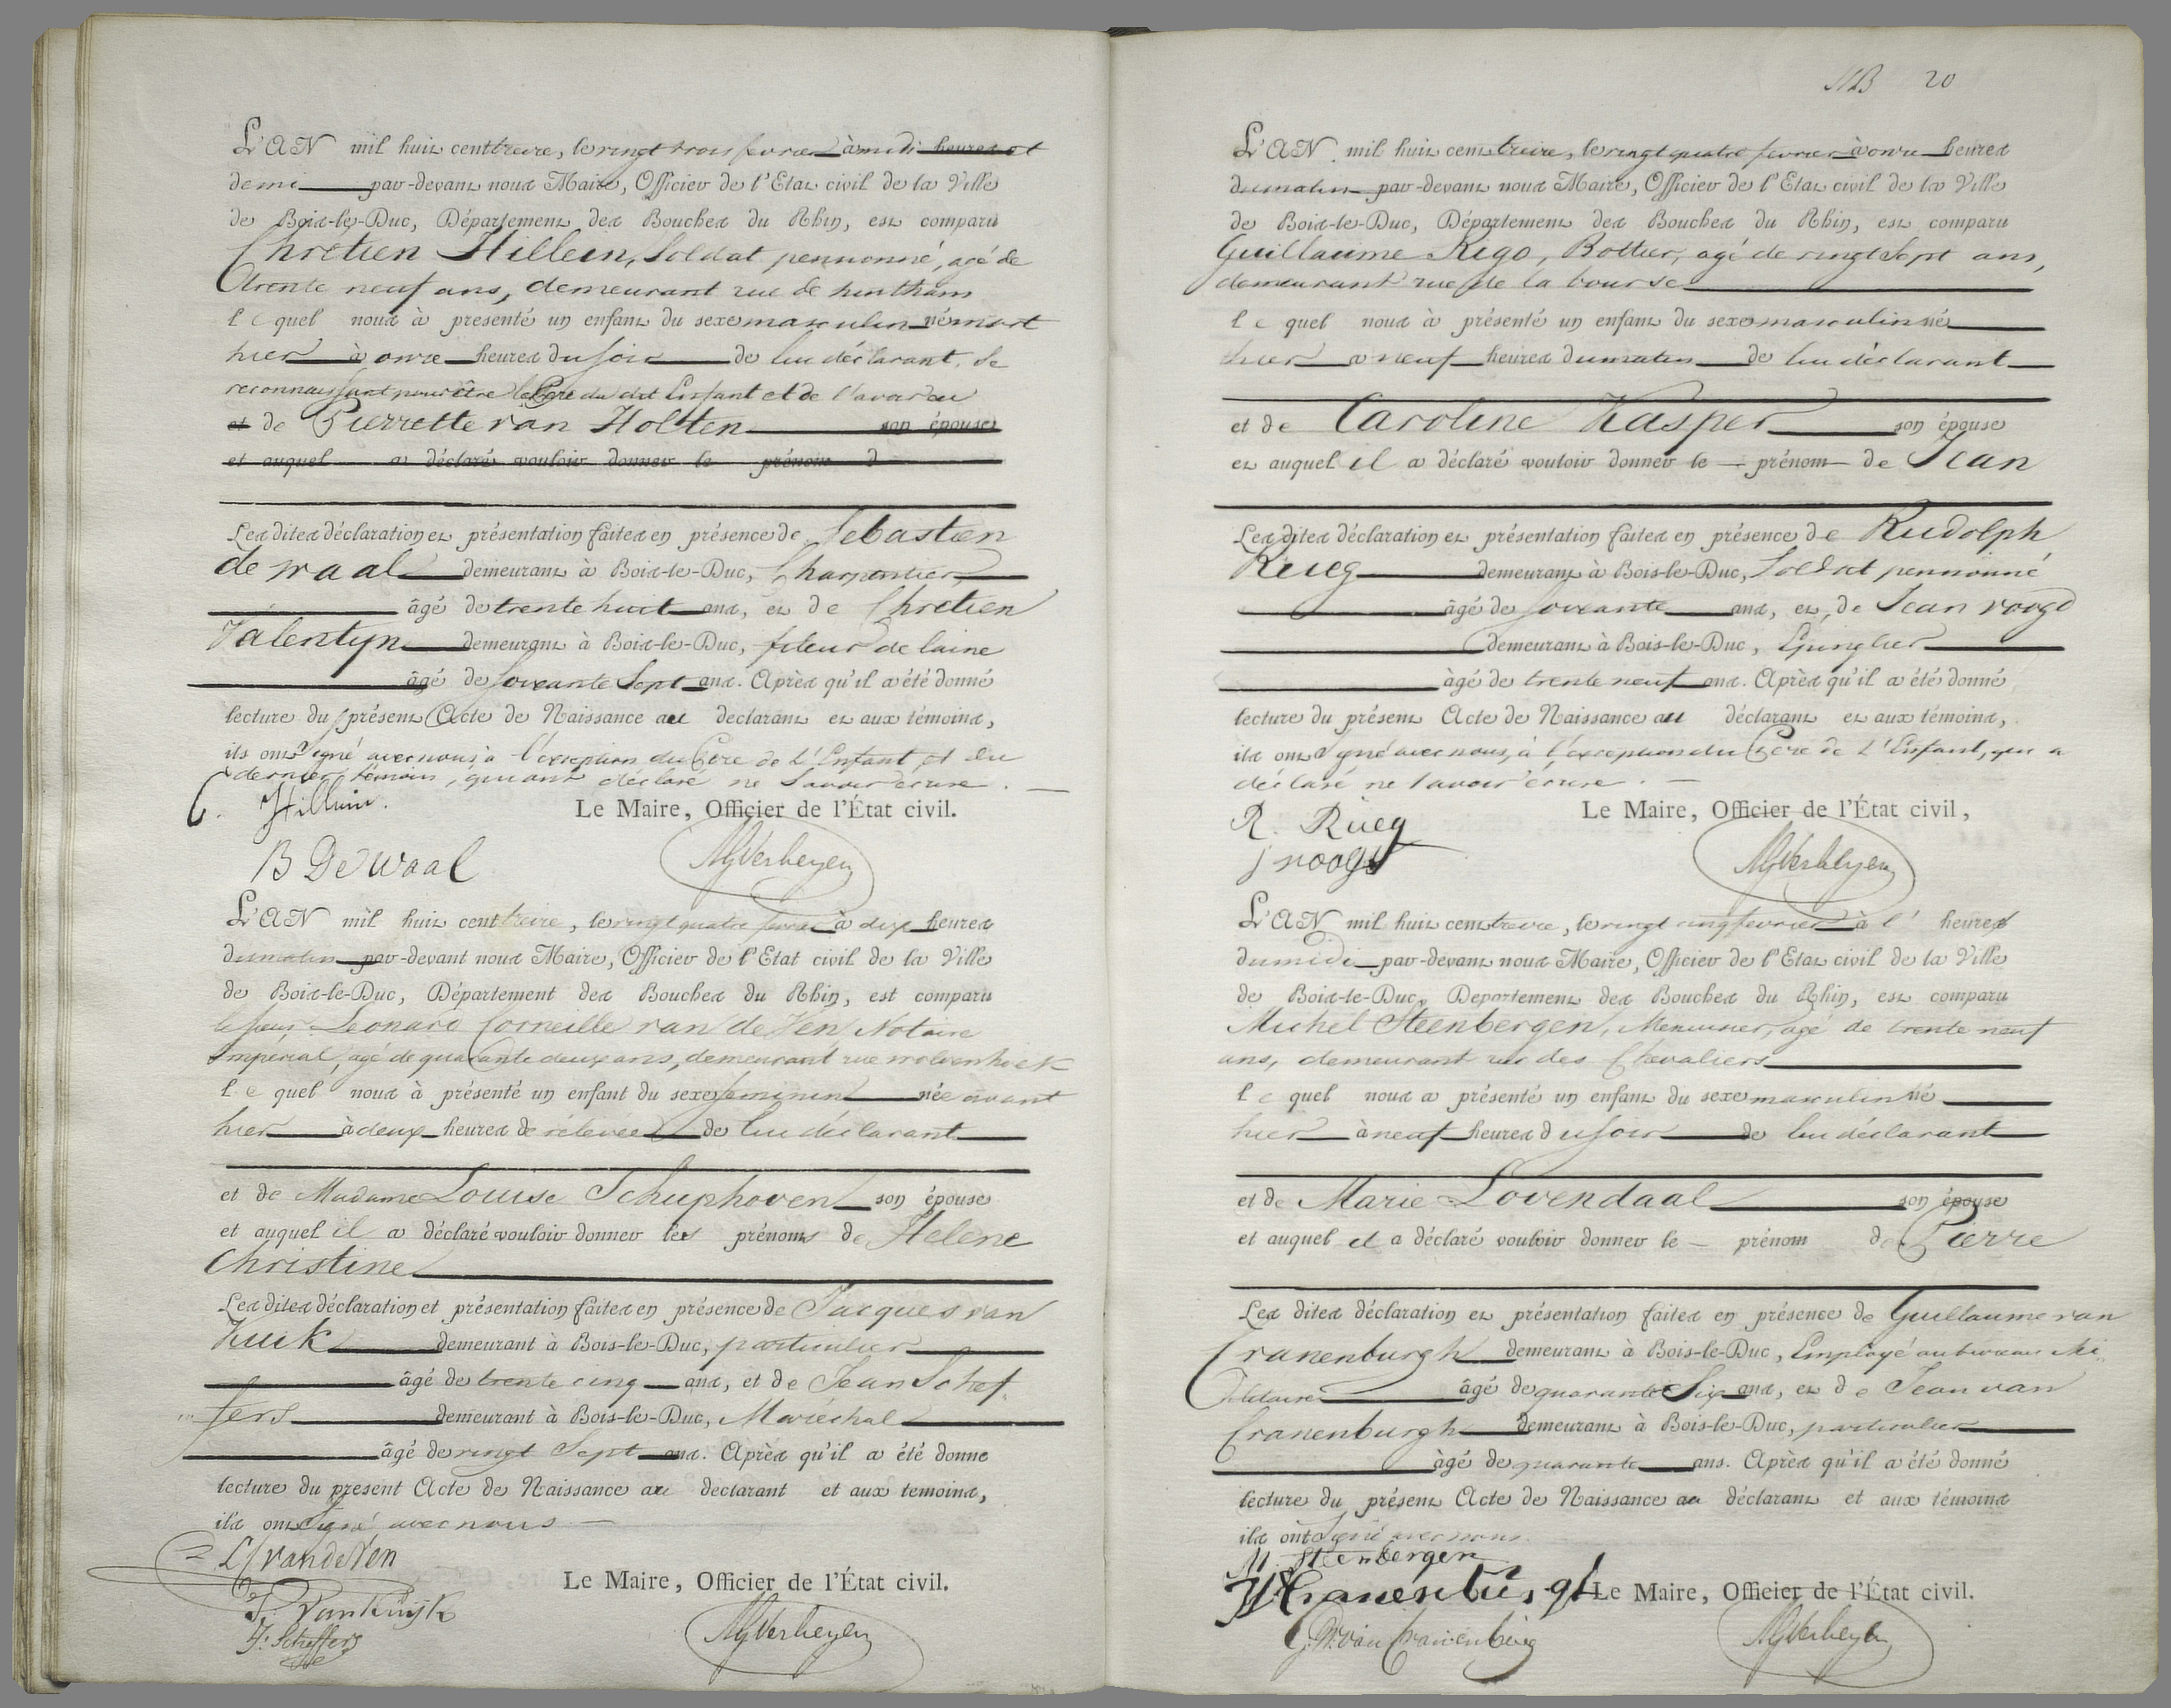 L'AN mil huit cent treize, le vingt trois fevrier à midi heures et
demi par-devant nous Maire, Officier de l'Etat civil de la Ville
de Bois-le-Duc, Département des Bouches du Rhin, est comparu
Chretien Hillein, Soldat pensionné, agé de
trente neuf ans, demeurant rue de hintham
lequel nous à presenté un enfant du sexe masculin né mort
hier à onze heures du soir de lui déclarant, se
reconnaissant pour être le Pere du dit Enfant et de l'avoir eu
et de Pierrette van Holten son épouse
et auquel a déclaré vouloir donner le prénom d
Les dites déclaration et présentation faites en présence de Sebastien
de Waal demeurant à Bois-le-Duc, Charpentier
âgé de trente huit ans, et de Chretien
Valentyn demeurant à Bois-le-Duc, fileur de laine
âgé de soixante Sept ans. Après qu'il a été donné
lecture du présent Acte de Naissance au declarant et aux témoins,
ils ont signé avec nous, à l'exception du Pere de L'Enfant et du
dernier témoin, qui ont déclaré ne Savoir écrire.
C. Hillein.
Le Maire, Officier de l'État civil.
B De Waal
AGVerheyen
L'AN mil huit cent treize, le vingt quatre fevrier à dix heures
du matin par-devant nous Maire, Officier de l'Etat civil de la Ville
de Bois-le-Duc, Département des Bouches du Rhin, est comparu
le Sieur Leonard Corneille van de Ven, Notaire
Imperial, agé de quarante deux ans, demeurant rue wolvenhoek
lequel nous à présenté un enfant du sexe feminin née avant
hier à deux heures de relevée de lui déclarant
et de Madame Louise Schuphoven son épouse
et auquel il a déclaré vouloir donner les prénoms de Helene
Christine
Les dites déclaration et présentation faites en présence de Jacques van
Kuik demeurant à Bois-le-Duc, particulier
âgé de trente cinq ans, et de Jean Schef
fers demeurant à Bois-le-Duc, Maréchal
âgé de vingt Sept ans. Après qu'il a été donne
lecture du present Acte de Naissance au declarant et aux temoins,
ils ont Signé avec nous
LC van de Ven
Le Maire, Officier de l'État civil.
J. Van Kuijk
J: Scheffers
AGVerheyen
20
L'AN mil huit cent treize, le vingt quatre fevrier à onze heures
du matin par-devant nous Maire, Officier de l'Etat civil de la Ville
de Bois-le-Duc, Département des Bouches du Rhin, est comparu
Guillaume Rigo, Bottier, agé de vingt Sept ans,
demeurant rue de la bourse
lequel nous à présenté un enfant du sexe masculin né
hier a neuf heures du matin de lui déclarant
et de Caroline Kasper son épouse
et auquel il a déclaré vouloir donner le prénom de Jean
Les dites déclaration et présentation faites en présence de Rudolph
Rueg demeurant à Bois-le-Duc, Soldat pensionné
âgé de soixante ans, et de Jean voogd
demeurant à Bois-le-Duc, Epinglier
âgé de trente neuf ans. Après qu'il a été donné
lecture du présent Acte de Naissance au déclarant et aux témoins,
ils ont Signé avec nous, à l'exception du Pere de L'Enfant, qui a
déclaré ne savoir écrire.
R. Rüeg
Le Maire, Officier de l'État civil,
J voogd
AGVerheyen
L'AN mil huit cent treize, le vingt cinq fevrier à l' heures
du midi par-devant nous Maire, Officier de l'Etat civil de la Ville
de Bois-le-Duc, Departement des Bouches du Rhin, est comparu
Michel Steenbergen, Menuisier, agé de trente neuf
ans, demeurant rue des Chevaliers
lequel nous a présenté un enfant du sexe masculin né
hier à neuf heures du soir de lui déclarant
et de Marie Lovendaal son épouse
et auquel il a déclaré vouloir donner le prénom de Pierre
Les dites déclaration et présentation faites en présence de Guillaume van
Cranenburgh demeurant à Bois-le-Duc, Employé au bureau Mi
litaire âgé de quarante Six ans, et de Jean van
Cranenburgh demeurant à Bois-le-Duc, particulier
âgé de quarante ans. Après qu'il a été donné
lecture du présent Acte de Naissance au déclarant et aux témoins
ils ont Signé avec nous.
M. Steenbergen
Le Maire, Officier de l'État civil.
AGVerheyen